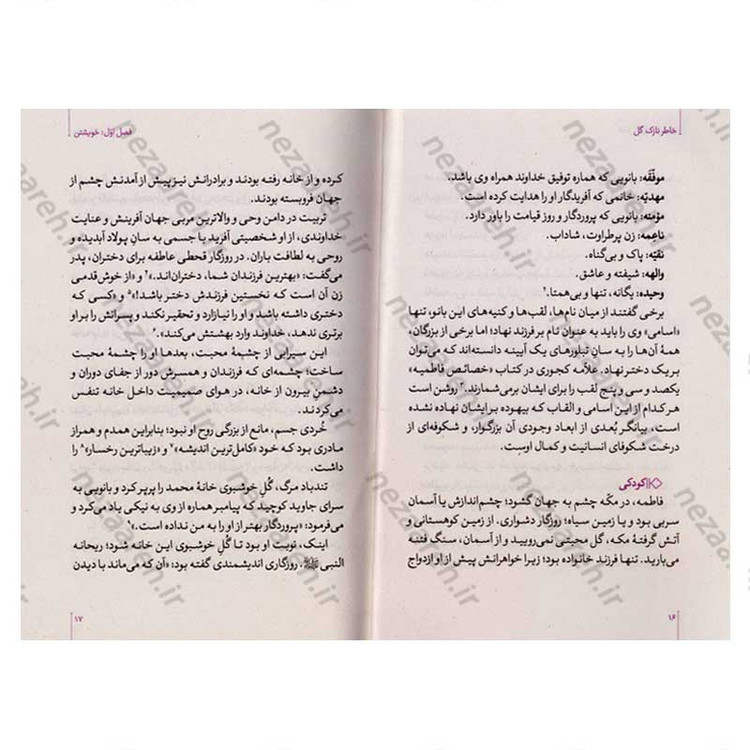 خاطر نازک گل
موفّقه: بانویی که هماره توفیق خداوند همراه وی باشد.
مهدیّه: خانمی که آفریدگار او را هدایت کرده است.
مؤمنه: بانویی که پروردگار و روز قیامت را باور دارد.
ناعمه: زن پرطراوت، شاداب.
نقیّه: پاک و بی‌گناه.
والهه: شیفته و عاشق.
وحیده: یگانه، تنها و بی‌همتا.
برخی گفتند از میان نام‌ها، لقب‌ها و کنیه‌های این بانو، تنها
«اسامی» وی را باید به عنوان نام بر فرزند نهاد؛ اما برخی از بزرگان
همهٔ آن‌ها را به سانِ تبلورهای یک آیینه دانسته‌اند که می‌توان
بر یک دختر نهاد. علاّمه کجوری در کتاب «خصائص فاطمیه»
یکصد و سی و پنج لقب را برای ایشان برمی‌شمارند. روشن است
هرکدام از این اسامی و القاب که بیهوده بر ایشان نهاده نشده
است، بیانگر بُعدی از ابعاد وجودی آن بزرگوار، و شکوفه‌ای از
درخت شکوفای انسانیت و کمال اوست.
کودکی
فاطمه، در مکّه چشم به جهان گشود؛ چشم‌اندازش یا آسمان
سربی بود و یا زمین سیاه؛ روزگار دشواری. از زمین کوهستانی و
آتش گرفتهٔ مکه، گل محبتی نمی‌رویید و از آسمان، سنگ فتنه
می‌بارید. تنها فرزند خانواده بود؛ زیرا خواهرانش پیش از او ازدواج
۱۶
فصل اوّل: خویشتن
کرده و از خانه رفته بودند و برادرانش نیز پیش از آمدنش چشم از
جهان فروبسته بودند.
تربیت در دامن وحی و والاترین مربی جهان آفرینش و عنایت
خداوندی، از او شخصیتی آفرید با جسمی به سانِ پولاد آبدیده و
روحی به لطافت باران. در روزگار قحطی عاطفه برای دختران، پدر
می‌گفت: «بهترین فرزندان شما، دختران‌اند.» و «از خوش‌قدمی
زن آن است که نخستین فرزندش دختر باشد!» و «کسی که
دختری داشته باشد و او را نیازارد و تحقیر نکند و پسرانش را بر او
برتری ندهد، خداوند وارد بهشتش می‌کند.»
این سیرابی از چشمهٔ محبت، بعدها او را چشمهٔ محبت
ساخت؛ چشمه‌ای که فرزندان و همسرش دور از جفای دوران و
دشمنِ بیرون از خانه، در هوای صمیمیت داخل خانه تنفس
می‌کردند.
خُردی جسم، مانع از بزرگی روح او نبود؛ بنابراین همدم و همراز
مادری بود که خود «کامل‌ترین اندیشه» و «زیباترین رخسار» را
داشت.
تندباد مرگ، گُل خوشبوی خانهٔ محمد را پرپر کرد و بانویی به
سرای جاوید کوچید که پیامبر هماره از وی به نیکی یاد می‌کرد و
می‌فرمود: «پروردگار بهتر از او را به من نداده است.»
اینک، نوبت او بود تا گُلِ خوشبوی این خانه شود؛ ریحانه
النبی ﷺ. روزگاری اندیشمندی گفته بود: «آن که می‌ماند با دیدن
۱۷
nezaareh.ir